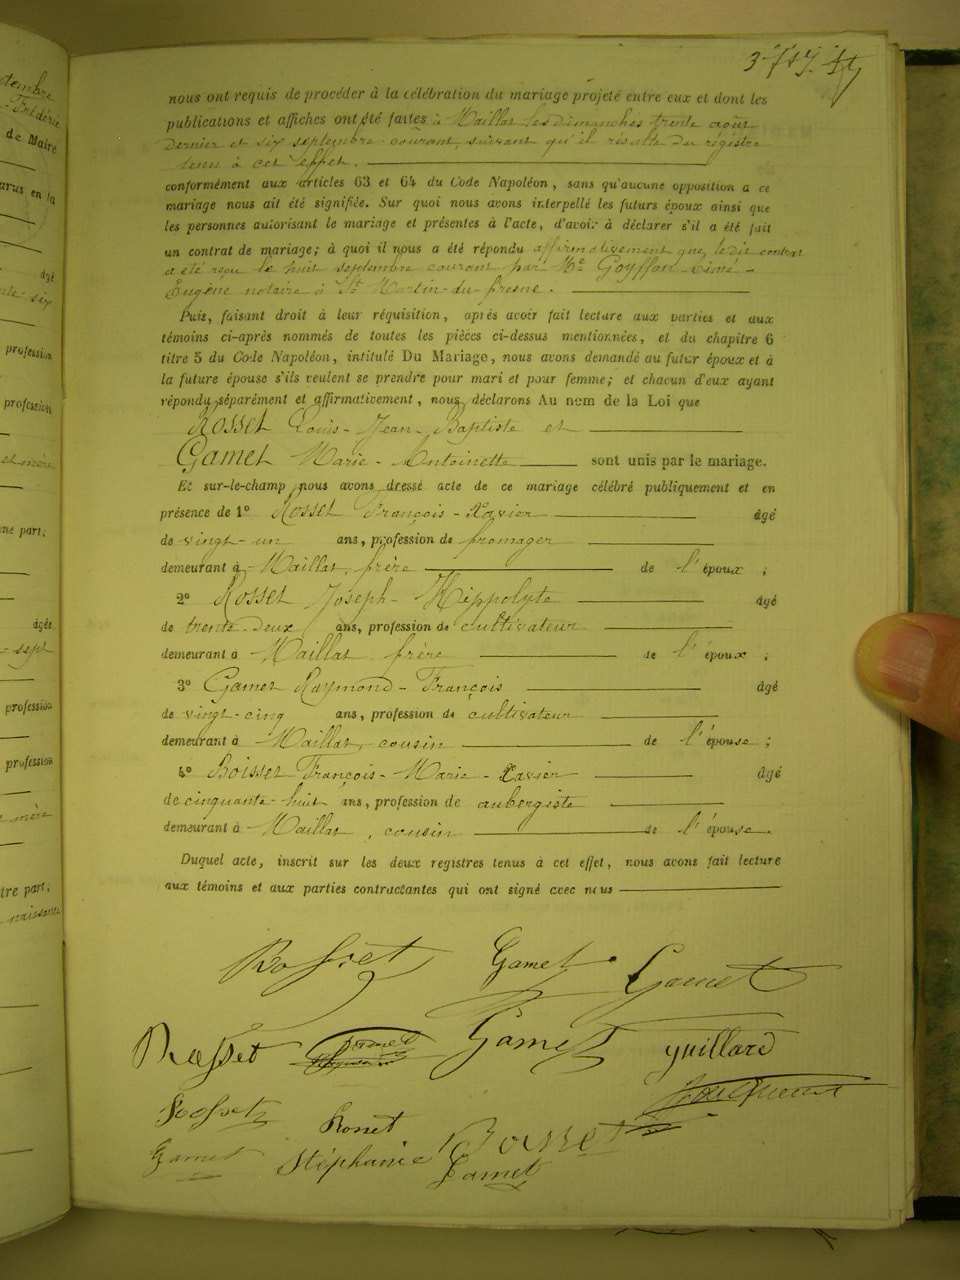 nous ont requis de procéder à la célébration du mariage projeté entre eux et dont les
publications et affiches ont été faites à Maillat les dimanches trente août
dernier et six septembre courant, suivant qu'il résulte du registre
tenu à cet effet.
conformément aux articles 63 et 64 du Code Napoléon, sans qu'aucune opposition a ce
mariage nous ait été signifiée. Sur quoi nous avons interpellé les futurs époux ainsi que
les personnes autorisant le mariage et présentes à l'acte, d'avoir à déclarer s'il a été fait
un contrat de mariage; à quoi il nous a été répondu affirmativement que ledit contrat
a été reçu le huit septembre courant par Me Goyffon-
Eugène notaire à St Martin-du-fresne.
Puis, faisant droit à leur réquisition, après avoir fait lecture aux parties et aux
témoins ci-après nommés de toutes les pièces ci-dessus mentionnées, et du chapitre 6
titre 5 du Code Napoléon, intitulé Du Mariage, nous avons demandé au futur époux et à
la future épouse s'ils veulent se prendre pour mari et pour femme; et chacun d'eux ayant
répondu séparément et affirmativement, nous déclarons Au nom de la Loi que
Rosset Louis-Jean-Baptiste et
Gamet Marie-Antoinette sont unis par le mariage.
Et sur-le-champ nous avons dressé acte de ce mariage célébré publiquement et en
présence de 1° Rosset François-Xavier âgé
de vingt-un ans, profession de fromager
demeurant à Maillat, frère de l'époux;
2° Rosset Joseph-Hippolyte âgé
de trente-deux ans, profession de cultivateur
demeurant à Maillat frère de l'époux;
3° Gamet Raymond-François âgé
de vingt-cinq ans, profession de cultivateur
demeurant à Maillat, cousin de l'épouse;
4° Boisset François-Marie-Xavier âgé
de cinquante-huit ans, profession de aubergiste
demeurant à Maillat, cousin de l'épouse.
Duquel acte, inscrit sur les deux registres tenus à cet effet, nous avons fait lecture
aux témoins et aux parties contractantes qui ont signé avec nous
Rosset Gamet Gamet
Rosset Gamet guillard
Rosset Ronet
Gamet Stéphanie Gamet